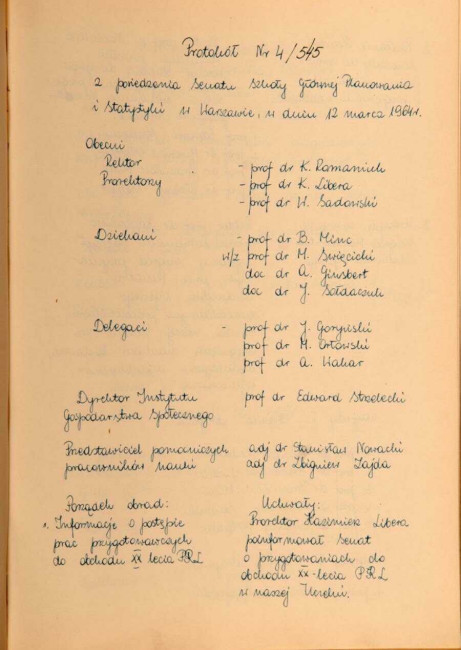 Protokół Nr 4/545
z posiedzenia Senatu Szkoły Głównej Planowania
i Statystyki w Warszawie, w dniu 12 marca 1964 r.
Obecni
Rektor - prof dr K. Romaniuk
Prorektorzy - prof dr K. Libera
- prof dr W. Sadowski
Dziekani - prof dr B. Minc
w/z prof dr M. Święcicki
doc dr A. Ginsbert
doc dr J. Sołdaczuk
Delegaci - prof dr J. Goryński
prof dr M. Orłowski
prof dr A. Wakar
Dyrektor Instytutu prof dr Edward Strzelecki
Gospodarstwa Społecznego
Przedstawiciel pomocniczych adj dr Stanisław Nowacki
pracowników nauki adj dr Zbigniew Zajda
Porządek obrad:
1. Informacje o postępie
prac przygotowawczych
do obchodu XX-lecia PRL
Uchwały:
Prorektor Kazimierz Libera
poinformował Senat
o przygotowaniach do
obchodu XX-lecia PRL
w naszej Uczelni.